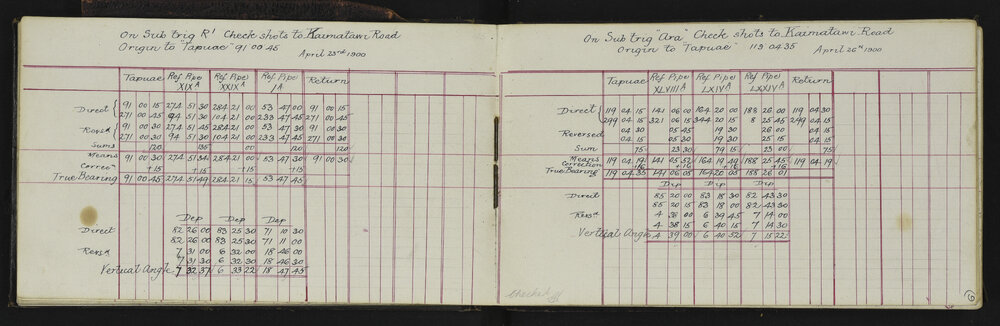 On Sub trig R' Check shots to Kaimatawi Road
Origin to "Tapuae" 91 00 45
April 23rd 1900
Tapuae Ref Pipe XIX A Ref Pipe XXIX A Ref Pipe IA Return
Direct { 91 00 15 274 51 30 284 21 00 53 47 00 91 00 15
271 00 45 94 51 30 104 21 00 233 47 45 271 00 45
Revsd { 91 00 30 274 51 45 284 21 00 53 47 30 91 00 30
271 00 30 94 51 30 104 21 00 233 47 45 271 00 30
Sums 120 135 00 120 120
Means 91 00 30 274 51 34 284 21 00 53 47 30 91 00 30
Correcn +15 +15 +15 +15
True Bearing 91 00 45 274 51 49 284 21 15 53 47 45
Dep Dep Dep
Direct 82 26 00 83 25 30 71 10 30
82 26 00 83 25 30 71 11 00
Revsd 7 31 00 6 32 00 18 46 00
7 31 30 6 32 30 18 46 30
Vertical Angle 7 32 37 6 33 22 18 47 45
On Sub trig "Ara" Check shots to Kaimatawi Road
Origin to "Tapuae" 119 04 35
April 26th 1900
Tapuae Ref Pipe XLVIII A Ref Pipe LXIV A Ref Pipe LXXIV A Return
Direct { 119 04 15 141 06 00 164 20 00 188 26 00 119 04 30
299 04 15 321 06 15 344 20 15 8 25 45 299 04 15
Reversed 04 30 05 45 19 30 26 00 04 15
04 15 05 30 19 30 25 15 04 15
Sum 75 23 30 79 15 23 00 75
Means 119 04 19 141 05 52 164 19 49 188 25 45 119 04 19
Correction +16 +16 +16
True Bearing 119 04 35 141 06 08 164 20 05 188 26 01
Dep Dep Dep
Direct 85 20 00 83 18 30 82 43 30
85 20 15 83 18 00 82 43 30
Revsd 4 38 00 6 39 45 7 14 00
4 38 15 6 40 15 7 14 30
Vertical Angle 4 39 00 6 40 52 7 15 22
Checked
6